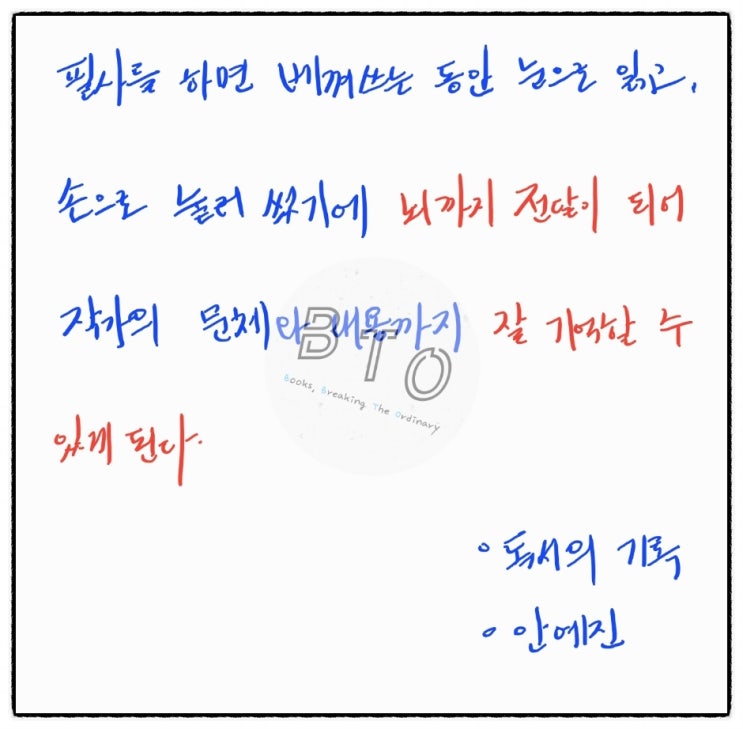 필사를 하면 베껴쓰는 동안 눈으로 읽고,
손으로 눌러 썼기에 뇌까지 전달이 되어
작가의 문체와 내용까지 잘 기억할 수
있게 된다.
BTO
Books, Breaking The Ordinary
◦ 독서의 기록
◦ 안예진